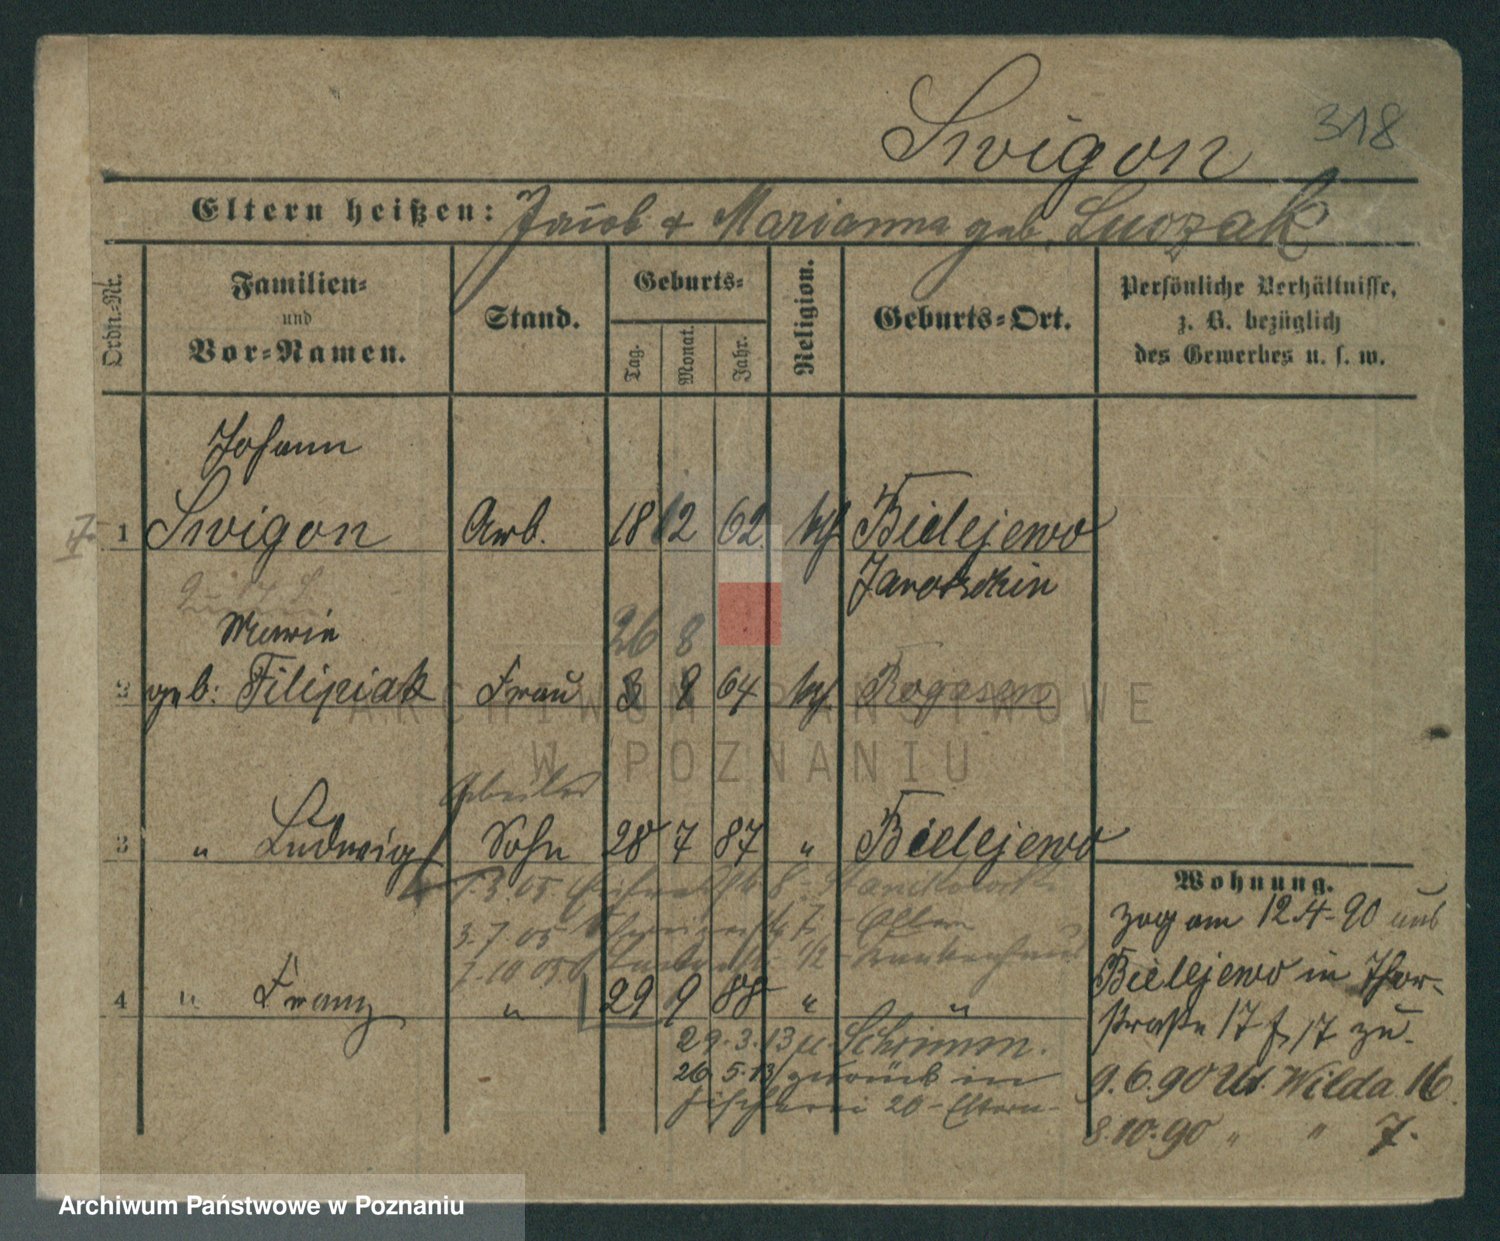 Swigon
318
Eltern heißen: Jacob & Marianna geb. Luczak
Ordn.-Nr.
Familien-
und
Vor-Namen.
Stand.
Geburts-
Tag.
Monat.
Jahr.
Religion.
Geburts-Ort.
Persönliche Verhältnisse,
z. B. bezüglich
des Gewerbes u. s. w.
Johann
1 Swigon Arb. 18 12 62 kth Bielejewo
Jarotschin
Marie 26 8
2 geb: Filipiak Frau 3 9 64 kth. Rogasen
ARCHIWUM PAŃSTWOWE
W POZNANIU
Arbeiter
3 " Ludwig Sohn 28 7 87 " Bielejewo
7.3.05
3.7.05 Eltern
7.10.05 Krankenhaus
4 " Franz " 29 9 88 " "
29.3.13 n. Schrimm.
26.5.13 zurück in
Fischerei 20 - Eltern -
Wohnung.
zog am 12.4.90 aus
Bielejewo in Thor-
straße 17 f. 17 zu.
9.6.90 Ut. Wilda 16.
8.10.90 " " 7.
Archiwum Państwowe w Poznaniu